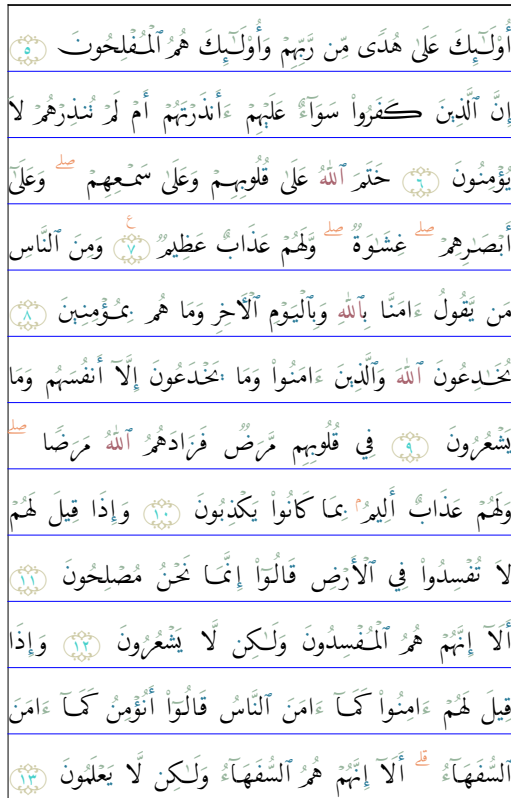 أُوْلَـٰٓئِكَ عَلَىٰ هُدًى مِّن رَّبِّهِمْ وَأُوْلَـٰٓئِكَ هُمُ ٱلْمُفْلِحُونَ ٥
إِنَّ ٱلَّذِينَ كَفَرُوا۟ سَوَآءٌ عَلَيْهِمْ ءَأَنذَرْتَهُمْ أَمْ لَمْ تُنذِرْهُمْ لَا
يُؤْمِنُونَ ٦ خَتَمَ ٱللَّهُ عَلَىٰ قُلُوبِهِمْ وَعَلَىٰ سَمْعِهِمْ ۖ وَعَلَىٰٓ
أَبْصَـٰرِهِمْ ۖ غِشَـٰوَةٌ ۖ وَلَهُمْ عَذَابٌ عَظِيمٌ ٧ ع وَمِنَ ٱلنَّاسِ
مَن يَقُولُ ءَامَنَّا بِٱللَّهِ وَبِٱلْيَوْمِ ٱلْـَٔاخِرِ وَمَا هُم بِمُؤْمِنِينَ ٨
يُخَـٰدِعُونَ ٱللَّهَ وَٱلَّذِينَ ءَامَنُوا۟ وَمَا يَخْدَعُونَ إِلَّآ أَنفُسَهُم وَمَا
يَشْعُرُونَ ٩ فِي قُلُوبِهِم مَّرَضٌ فَزَادَهُمُ ٱللَّهُ مَرَضًا ۖ
وَلَهُمْ عَذَابٌ أَلِيمٌۢ بِمَا كَانُوا۟ يَكْذِبُونَ ١٠ وَإِذَا قِيلَ لَهُمْ
لَا تُفْسِدُوا۟ فِي ٱلْأَرْضِ قَالُوٓا۟ إِنَّمَا نَحْنُ مُصْلِحُونَ ١١
أَلَآ إِنَّهُمْ هُمُ ٱلْمُفْسِدُونَ وَلَـٰكِن لَّا يَشْعُرُونَ ١٢ وَإِذَا
قِيلَ لَهُمْ ءَامِنُوا۟ كَمَآ ءَامَنَ ٱلنَّاسُ قَالُوٓا۟ أَنُؤْمِنُ كَمَآ ءَامَنَ
ٱلسُّفَهَآءُ ۗ أَلَآ إِنَّهُمْ هُمُ ٱلسُّفَهَآءُ وَلَـٰكِن لَّا يَعْلَمُونَ ١٣